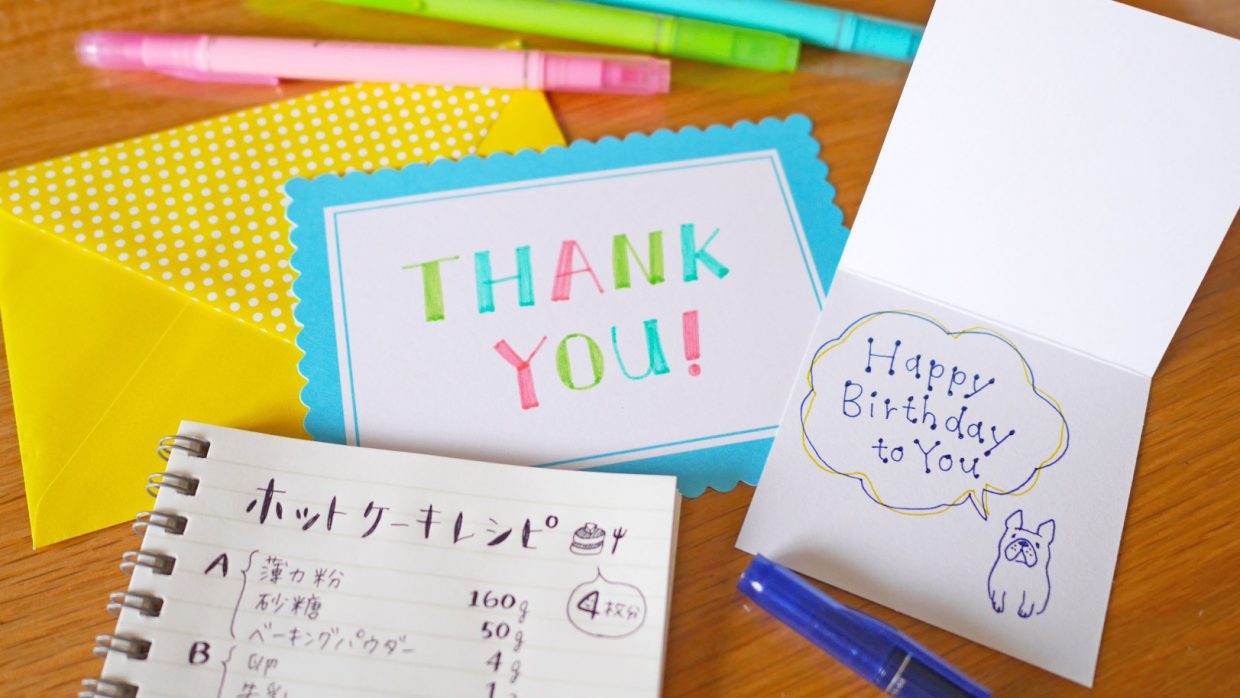 THANK
YOU!
Happy
Birthday
to You
ホットケーキレシピ
4枚分
A 薄力粉 160g
砂糖 50g
ベーキングパウダー 4g
B 卵 1
牛乳